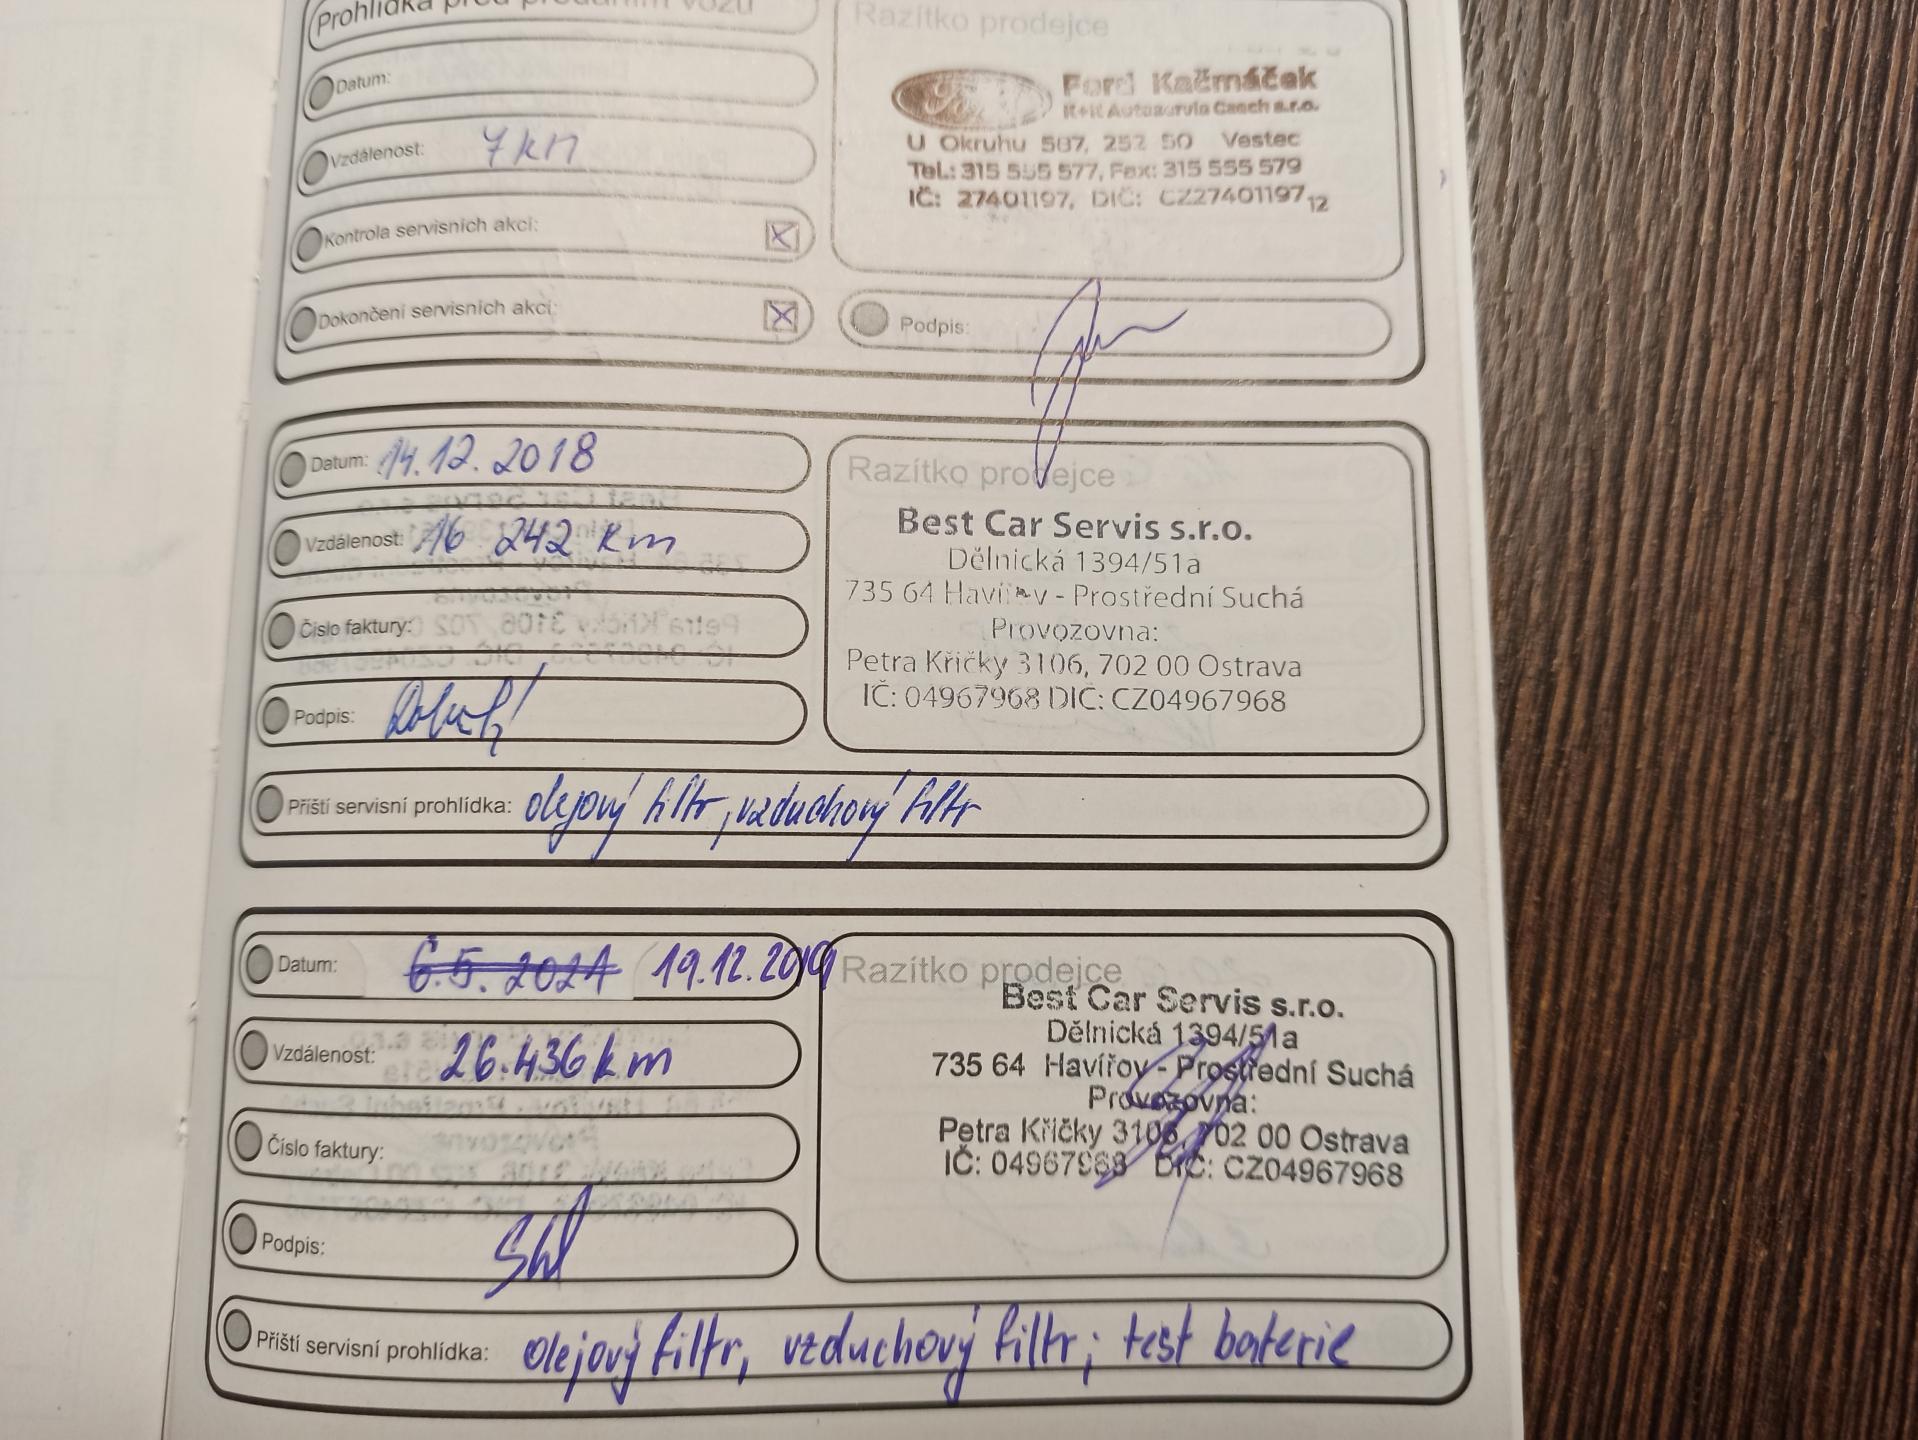 Prohlídka před prodáním vozu
Razítko prodejce
Datum:
Ford Kačmáček
R+R Autoservis Czech s.r.o.
U Okruhu 587, 252 50 Vestec
Tel.: 315 555 577, Fax: 315 555 579
IČ: 27401197, DIČ: CZ27401197 12
Vzdálenost: 7 km
Kontrola servisních akcí: X
Dokončení servisních akcí: X
Podpis:
Datum: 14.12.2018
Vzdálenost: 16 242 km
Číslo faktury:
Podpis:
Razítko prodejce
Best Car Servis s.r.o.
Dělnická 1394/51a
735 64 Havířov - Prostřední Suchá
Provozovna:
Petra Křičky 3106, 702 00 Ostrava
IČ: 04967968 DIČ: CZ04967968
Příští servisní prohlídka: olejový filtr, vzduchový filtr
Datum: 6.5.2021 19.12.2019
Vzdálenost: 26.436 km
Číslo faktury:
Podpis:
Razítko prodejce
Best Car Servis s.r.o.
Dělnická 1394/51a
735 64 Havířov - Prostřední Suchá
Provozovna:
Petra Křičky 3106, 702 00 Ostrava
IČ: 04967968 DIČ: CZ04967968
Příští servisní prohlídka: olejový filtr, vzduchový filtr; test baterie